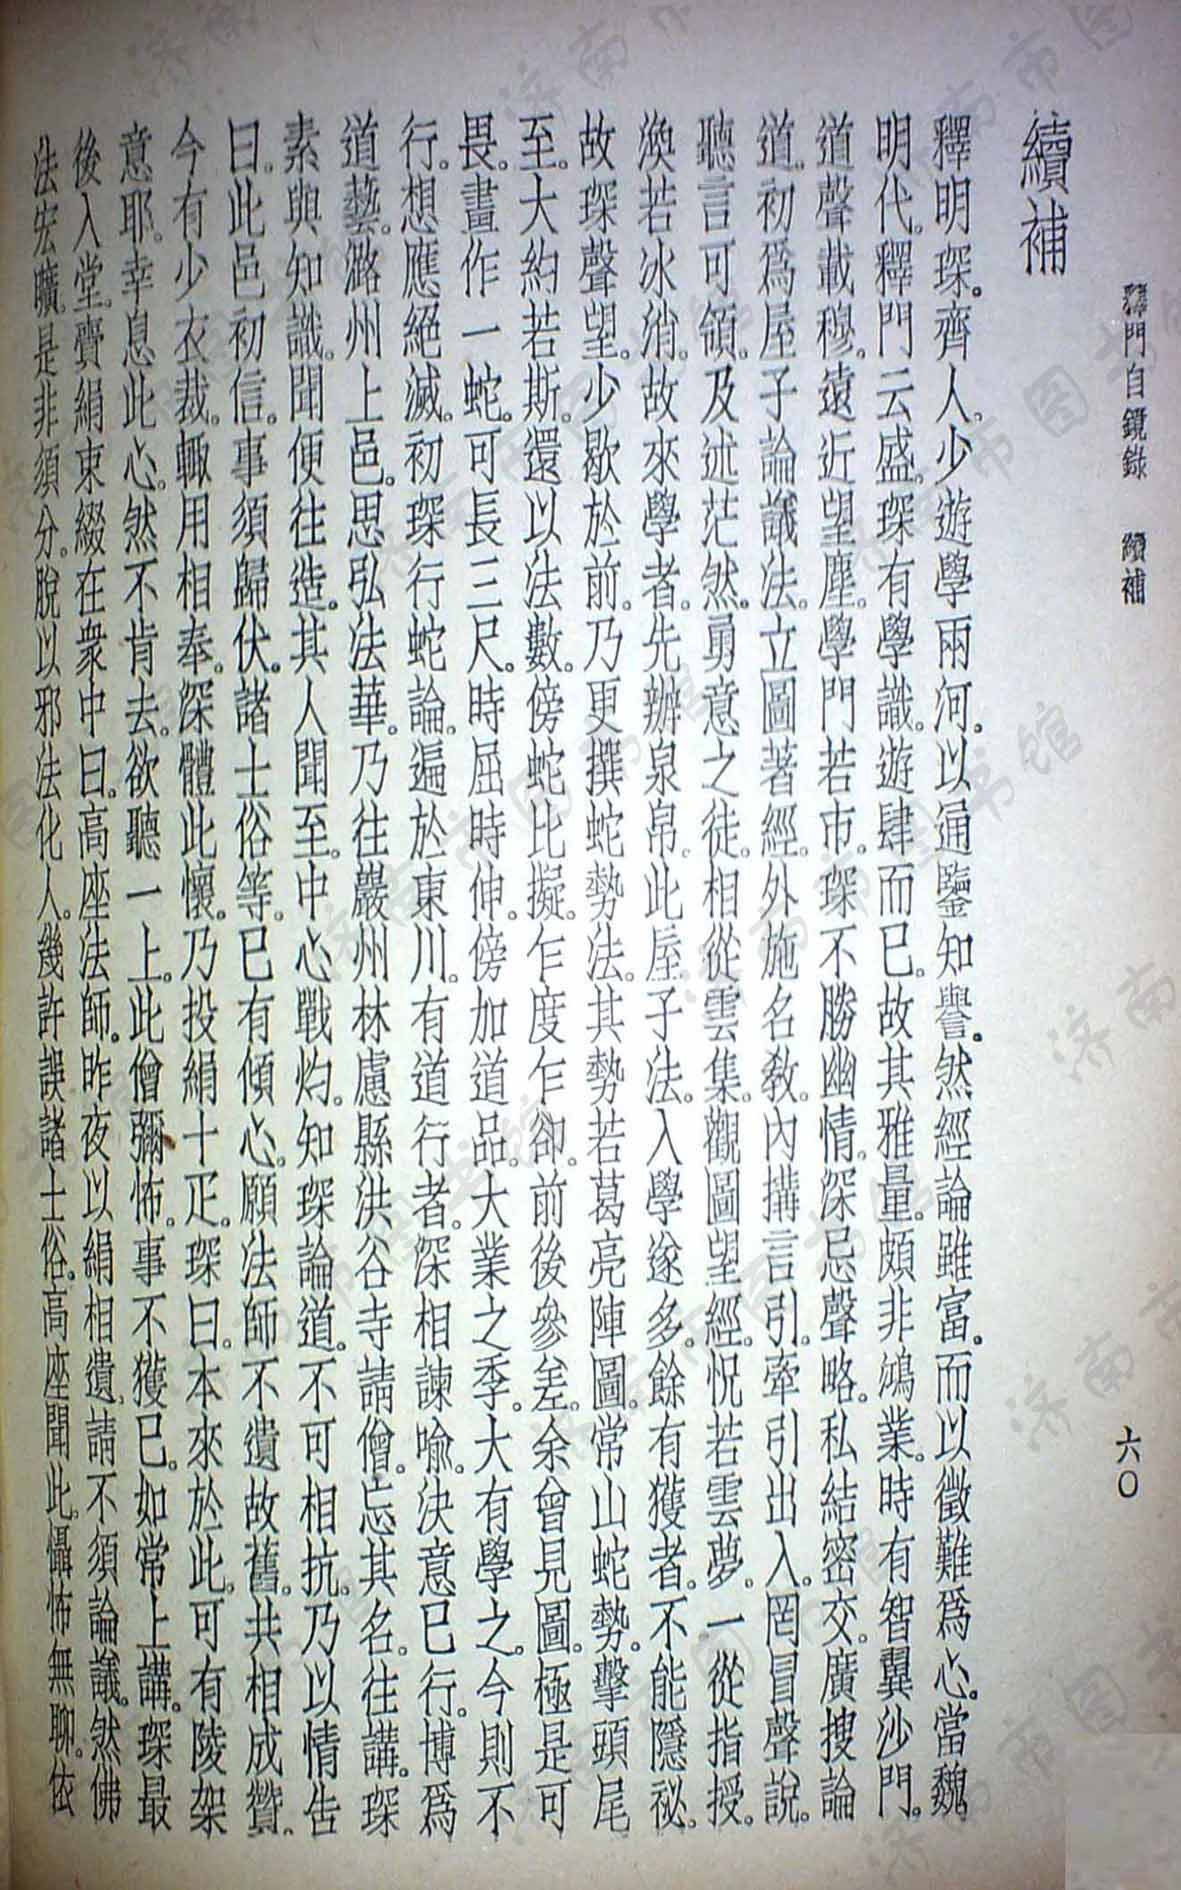 釋門自鏡錄　續補　六〇
續補
釋明琛。齊人。少遊學兩河。以通鑒知譽。然經論雖富。而以徵難爲心。當魏
明代。釋門云盛。琛有學識。遊肆而已。故其雅量。頗非鴻業。時有智翼沙門。
道聲載穆。遠近望塵。學門若市。琛不勝幽情。深忌聲略。私結密交。廣搜論
道。初爲屋子論議法。立圖著經。外施名教。內搆言引。牽引出入。罔冒聲說。
聽言可領。及述茫然。勇意之徒。相從雲集。觀圖望經。怳若雲夢。一從指授。
渙若冰消。故來學者。先辦泉帛。此屋子法。入學遂多。餘有獲者。不能隱祕。
故琛聲望。少歇於前。乃更撰蛇勢法。其勢若葛亮陣圖。常山蛇勢。擊頭尾
至。大約若斯。還以法數。傍蛇比擬。乍度乍卻。前後參差。余曾見圖。極是可
畏。畫作一蛇。可長三尺。時屈時伸。傍加道品。大業之季。大有學之。今則不
行。想應絕滅。初琛行蛇論。遍於東川。有道行者。深相諫喻。決意已行。博爲
道藝。潞州上邑。思弘法華。乃往巖州林慮縣洪谷寺請僧。忘其名。往講。琛
素與知識。聞便往造。其人聞至。中心戰灼。知琛論道。不可相抗。乃以情告
曰。此邑初信。事須歸伏。諸士俗等。已有傾心。願法師不遺故舊。共相成贊。
今有少衣裁。輒用相奉。深體此懷。乃投絹十疋。琛曰。本來於此。可有陵架
意耶。幸息此心。然不肯去。欲聽一上。此僧彌怖。事不獲已。如常上講。琛最
後入堂。賷絹束綴在衆中曰。高座法師。昨夜以絹相遺。請不須論議。然佛
法宏曠。是非須分。脫以邪法化人。幾許誤諸士俗。高座聞此。懾怖無聊。依